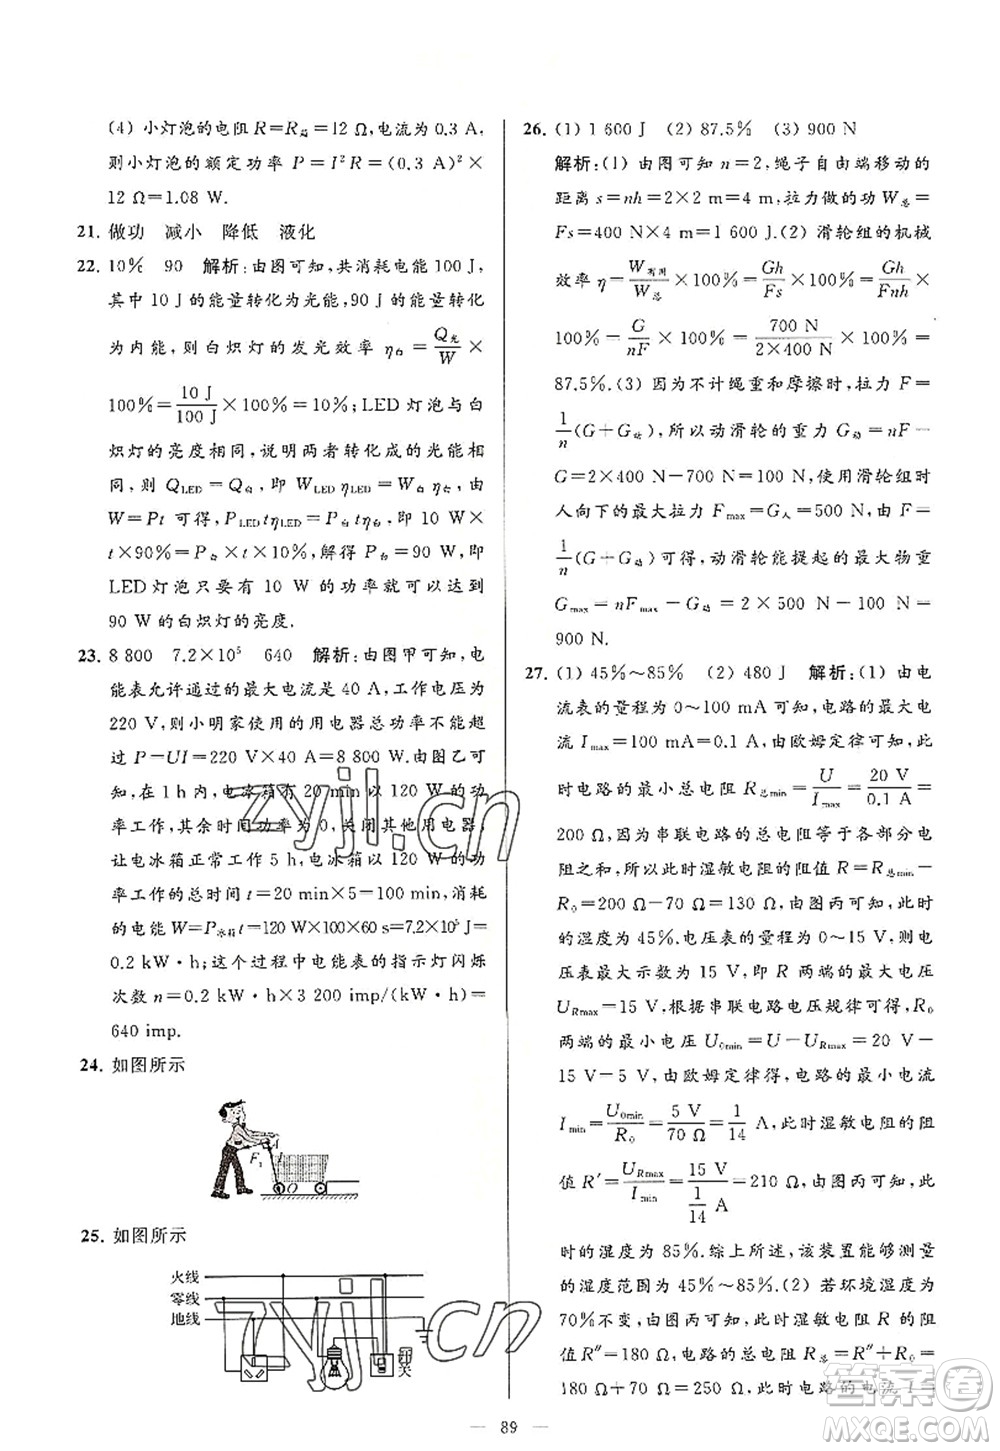 (4) 小灯泡的电阻 R=R箱=12 Ω,电流为0.3 A,
则小灯泡的额定功率 P=I²R=(0.3 A)²×
12 Ω=1.08 W.
21. 做功 减小 降低 液化
22. 10% 90 解析:由图可知,共消耗电能100 J,
其中 10 J的能量转化为光能,90 J的能量转化
为内能,则白炽灯的发光效率 η白=Q光/W×
100%=10 J/100 J×100%=10%;LED灯泡与白
炽灯的亮度相同,说明两者转化成的光能相
同,则 Q_LED=Q白,即 W_LED η_LED=W白 η白,由
W=Pt 可得,P_LED tη_LED=P白 tη白,即 10 W×
t×90%=P白×t×10%,解得 P白=90 W,即
LED灯泡只要有 10 W 的功率就可以达到
90 W 的白炽灯的亮度.
23. 8 800 7.2×10⁵ 640 解析:由图甲可知,电
能表允许通过的最大电流是 40 A,工作电压为
220 V,则小明家使用的用电器总功率不能超
过 P=UI=220 V×40 A=8 800 W.由图乙可
知,在 1 h 内,电冰箱有 20 min 以 120 W 的功
率工作,其余时间功率为 0,关闭其他用电器,
让电冰箱正常工作 5 h,电冰箱以 120 W 的功
率工作的总时间 t=20 min×5=100 min,消耗
的电能 W=P冰箱t=120 W×100×60 s=7.2×10⁵ J=
0.2 kW·h;这个过程中电能表的指示灯闪烁
次数 n=0.2 kW·h×3 200 imp/(kW·h)=
640 imp.
24. 如图所示
F₁
25. 如图所示
火线
零线
地线
开关
26. (1) 1 600 J (2) 87.5% (3) 900 N
解析:(1) 由图可知 n=2,绳子自由端移动的
距离 s=nh=2×2 m=4 m,拉力做的功 W总=
Fs=400 N×4 m=1 600 J.(2) 滑轮组的机械
效率 η=W有用/W总×100%=Gh/Fs×100%=Gh/Fnh×
100%=G/nF×100%=700 N/(2×400 N)×100%=
87.5%.(3) 因为不计绳重和摩擦时,拉力 F=
1/n(G+G动),所以动滑轮的重力 G动=nF-
G=2×400 N-700 N=100 N,使用滑轮组时
人向下的最大拉力 Fmax=G人=500 N,由 F=
1/n(G+G动)可得,动滑轮能提起的最大物重
Gmax=nFmax-G动=2×500 N-100 N=
900 N.
27. (1) 45%~85% (2) 480 J 解析:(1) 由电
流表的量程为 0~100 mA 可知,电路的最大电
流 Imax=100 mA=0.1 A,由欧姆定律可知,此
时电路的最小总电阻 R总min=U/Imax=20 V/0.1 A=
200 Ω,因为串联电路的总电阻等于各部分电
阻之和,所以此时湿敏电阻的阻值 R=R总min-
R₀=200 Ω-70 Ω=130 Ω,由图丙可知,此时
的湿度为 45%.电压表的量程为 0~15 V,则电
压表的最大示数为 15 V,即 R 两端的最大电压
URmax=15 V,根据串联电路电压规律可得,R₀
两端的最小电压 U0min=U-URmax=20 V-
15 V=5 V,由欧姆定律得,电路的最小电流
Imin=U0min/R₀=5 V/70 Ω=1/14 A,此时湿敏电阻的阻
值 R′=URmax/Imin=15 V/(1/14 A)=210 Ω,由图丙可知,此
时的湿度为 85%.综上所述,该装置能够测量
的湿度范围是 45%~85%.(2) 若环境湿度为
70%不变,由图丙可知,此时湿敏电阻 R 的阻
值 R″=180 Ω,电路的总电阻 R总=R″+R₀=
180 Ω+70 Ω=250 Ω,此时电路的电流 I=
— 89 —
zyjl.cn
zyjl.cn
答案圈
MXQE.COM